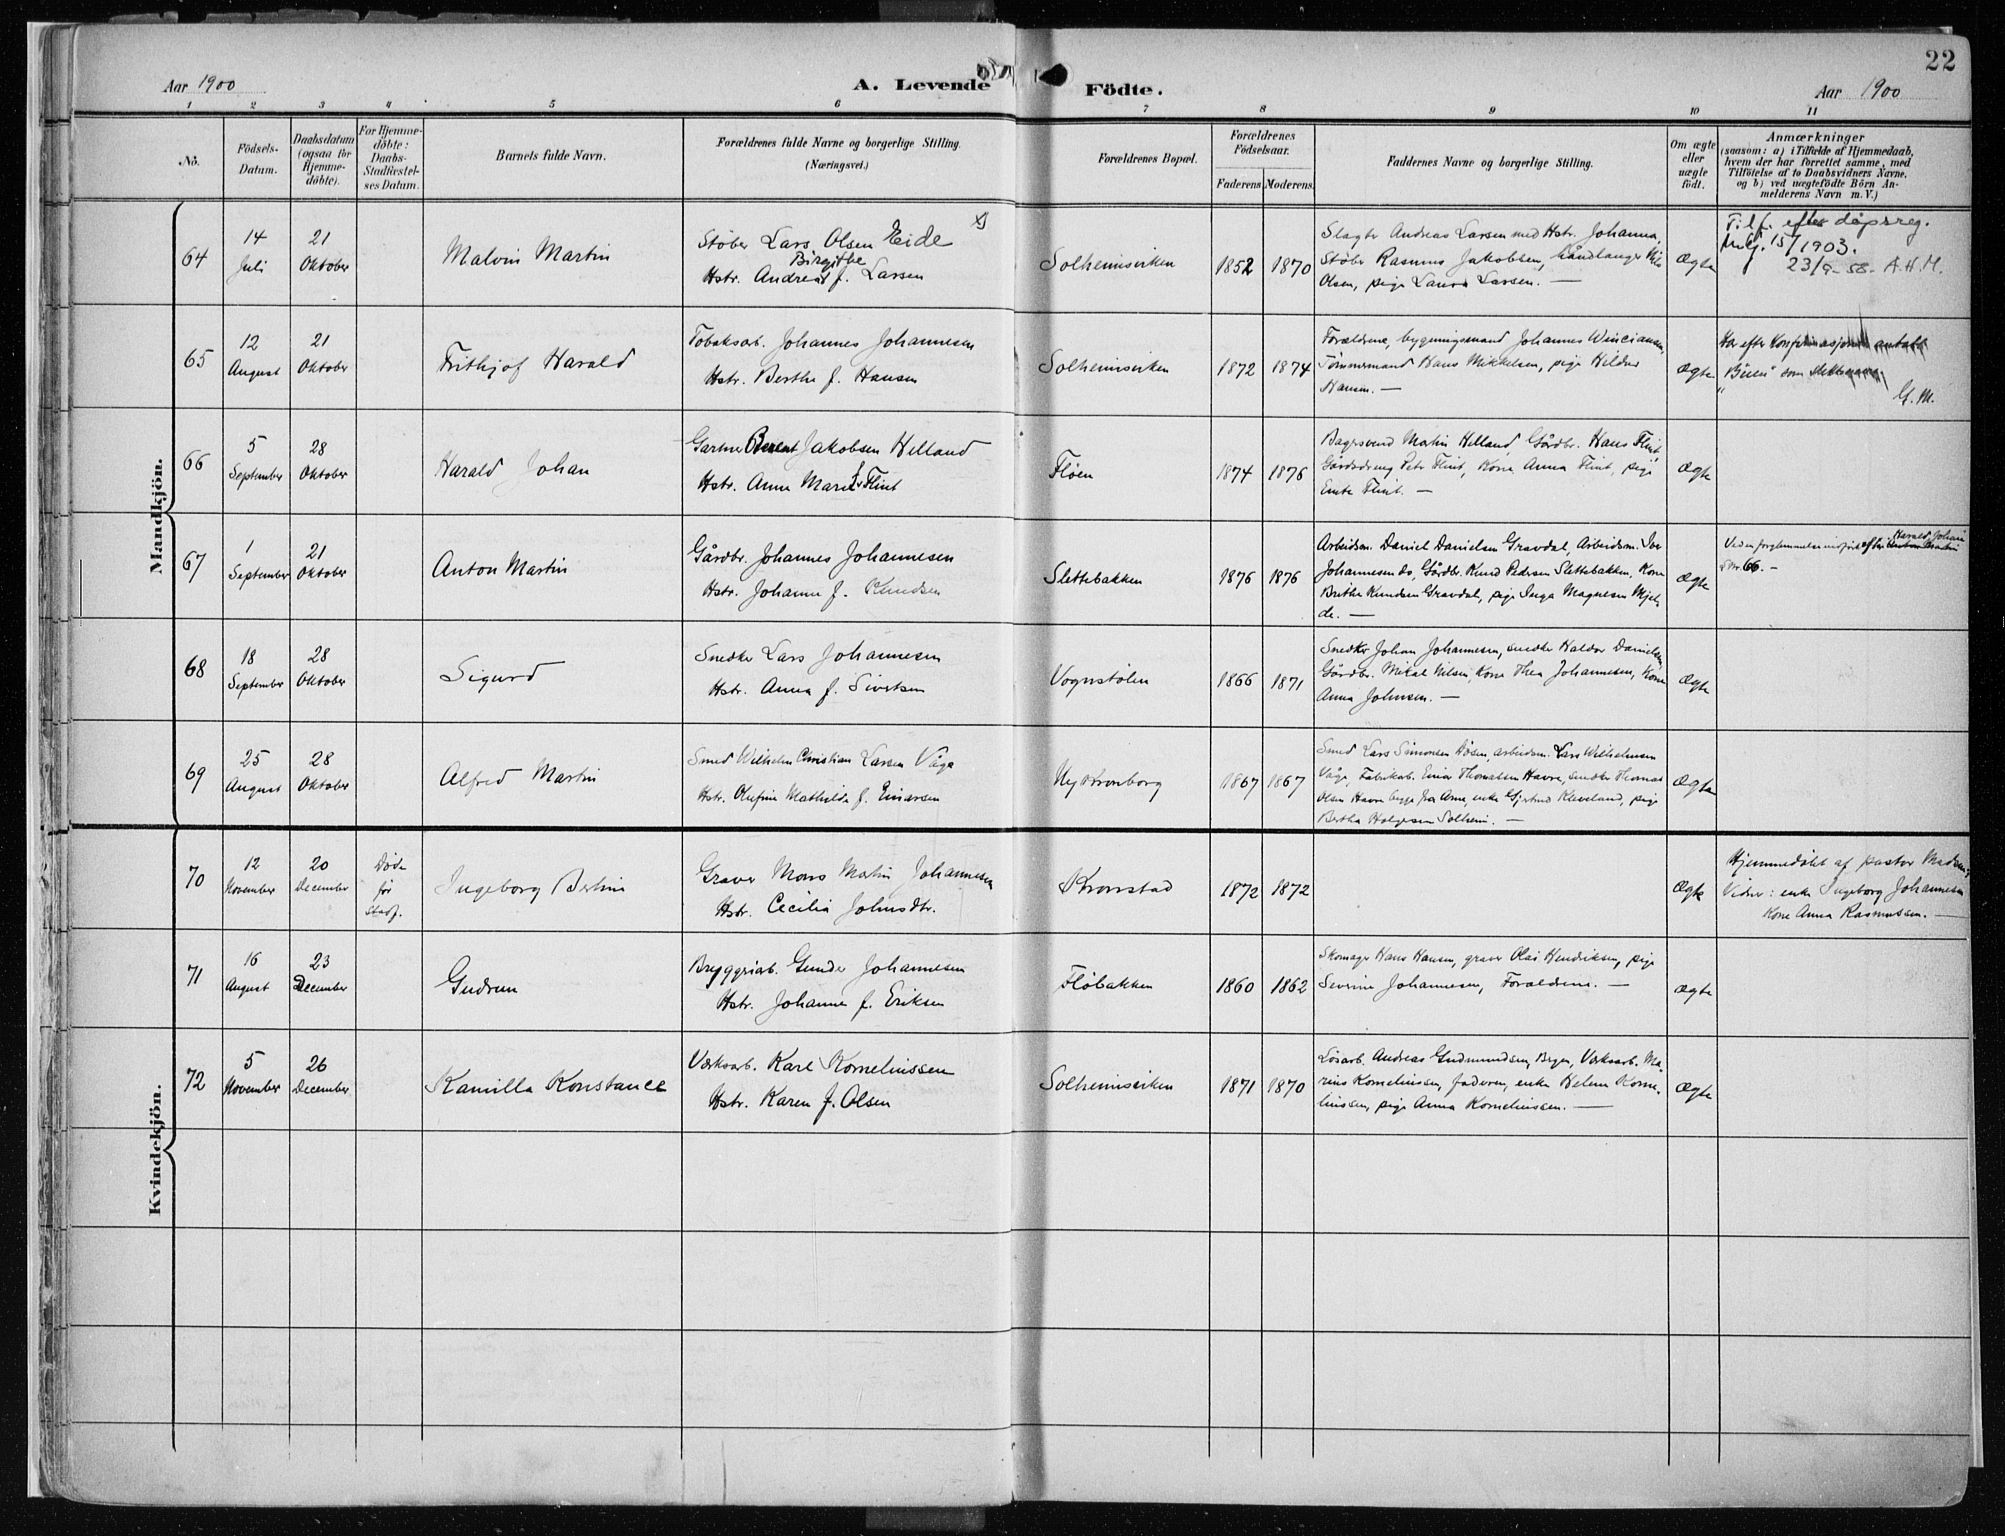 22
Aar 1900
A. Levende Födte.
Aar 1900
1 2 3 4 5 6 7 8 9 10 11
No.
Födsels-
Datum.
Daabsdatum
(ogsaa for
Hjemme-
döbte).
For Hjemme-
döbte:
Daabs-
Stadfæstel-
ses Datum.
Barnets fulde Navn.
Forældrenes fulde Navne og borgerlige Stilling.
(Næringsvei.)
Forældrenes Bopæl.
Forældrenes
Födselsaar.
Faderens Moderens.
Faddernes Navne og borgerlige Stilling.
Om ægte
eller
uægte
födt.
Anmærkninger
(saasom: a) i Tilfælde af Hjemmedaab,
hvem der har forrettet samme, med
Tilföielse af to Daabsvidners Navne,
og b) ved uægtefödte Börn An-
melderens Navn m. V.)
Mandkjön.
64
14
Juli
21
Oktober
Malvin Martin
x)
Støber Lars Olsen Eide
Birgithe
Hstr. Andrea f. Larsen
Solheimsviken
1852 1870
Slagter Andreas Larsen med Hstr. Johanna,
Støber Rasmus Jakobsen, håndlanger Nils
Olsen, pige Laura Larsen. —
Ægte
Tilf. efter dåpsreg.
15/1903.
23/9-58. A.H.M.
65
12
August
21
Oktober
Frithjof Harald
Tobaksarb. Johannes Johannesen
Hstr. Berthe f. Hansen
Solheimsviken
1872 1874
Forældrene, bygningsmand Johannes
Tømmermand Hans Mikkelsen, pige Hildur
Hansen. —
Ægte
Har efter Konfirmasjonen antatt
som
G. M.
66
5
September
28
Oktober
Harald Johan
Gartner Berent Jakobsen Helland
Hstr. Anne Marie f. Flint
Fløen
1874 1876
Bagersvend Martin Helland, Gårdbr. Hans Flint,
Gårdsdreng Petr Flint, Kone Anna Flint, pige
Flint. —
Ægte
67
1
September
21
Oktober
Anton Martin
Gårdbr. Johannes Johannesen
Hstr. Johanne f. Knudsen
Slettebakken
1876 1876
Arbeidsm. Daniel Danielsen Gravdal, Arbeidsm. Ivar
Johannesen do, Gårdbr. Knud Pedersen Slettebakken, Kone
Brithe Knudsen Gravdal, pige Inga Magnesen Mjel-
de. —
Ægte
Harald Johan
Ved en forglemmelse indført efter Anton Martin
No. 66. —
68
18
September
28
Oktober
Sigurd
Snedker Lars Johannesen
Hstr. Anna f. Sivertsen
Vognstølen
1866 1871
Snedker Johan Johannesen, snedker Haldor Danielsen,
Gårdbr. Mikal Nilsen, Kone Thea Johannesen, Kone
Anna Johnsen. —
Ægte
69
25
August
28
Oktober
Alfred Martin
Smed Wilhelm Christian Larsen Våge
Hstr. Olufine Mathilde f. Einarsen
Ny Kronborg
1867 1867
Smed Lars Simonsen Døsen, arbeidsm. Lars Wilhelmsen
Våge, Fabrikarb. Einar Thomassen Havre, snedker Thomas
Olsen Havre begge fra Arne, enke Gjertrud Kleveland, pige
Bertha Helgesen Solheim. —
Ægte
Kvindekjön.
70
12
November
20
December
Døde
før
Stadf.
Ingeborg Bertine
Graver Mons Martin Johannesen
Hstr. Cecilia Johnsdtr.
Kronstad
1872 1872
Ægte
Hjemmedøbt af pastor Madsen,
Vidner: enke Ingeborg Johannesen
Kone Anna Rasmussen. —
71
16
August
23
December
Gudrun
Bryggeriarb. Gunder Johannesen
Hstr. Johanne f. Eriksen
Fløbakken
1860 1862
Skomager Hans Hansen, graver Olai Hendriksen, pige
Severine Johannesen, Forældrene. —
Ægte
72
5
November
26
December
Kamilla Konstance
Værksarb. Karl Korneliussen
Hstr. Karen f. Olsen
Solheimsviken
1871 1870
Løsarb. Andreas Gudmundsen, Bergen, Værksarb. Ma-
rius Korneliussen, faderen, enke Helene Korne-
liussen, pige Anna Korneliussen. —
Ægte